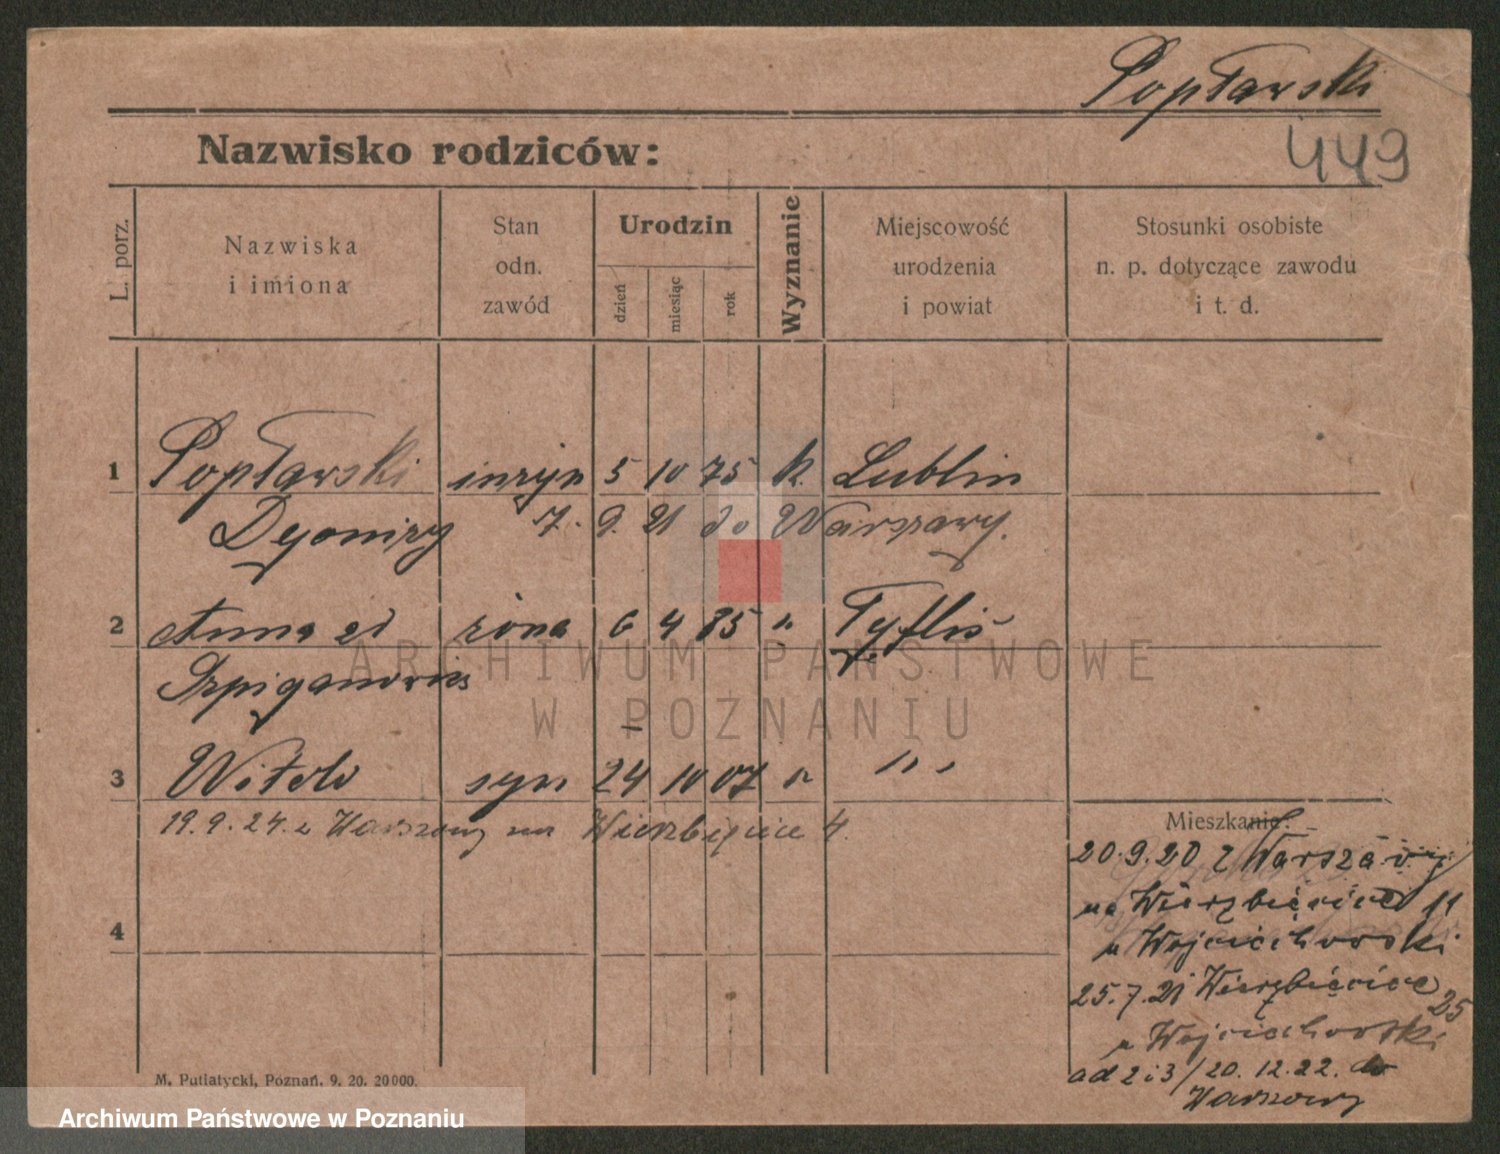 Popławski
449
Nazwisko rodziców:
L. porz.
Nazwiska
i imiona
Stan
odn.
zawód
Urodzin
dzień
miesiąc
rok
Wyznanie
Miejscowość
urodzenia
i powiat
Stosunki osobiste
n. p. dotyczące zawodu
i t. d.
1 Popławski inżyn 5 10 75 k. Lublin
Dyonizy 7. 9. 21 do Warszawy.
2 Anna żona 6 4 85 " Tyflis
3 Witold syn 24 10 07 " " "
19.9.24. z Warszawy na Wierzbięcice 4.
4
Mieszkanie:
20.9.20 z Warszawy
na Wierzbięcice 11
u Wojciechowski
25.7.21 Wierzbięcice 25
u Wojciechowski
ad 2 i 3 / 20.12.22. do
Warszawy
M. Putiatycki, Poznań. 9. 20. 20000.
ARCHIWUM PAŃSTWOWE
W POZNANIU
Archiwum Państwowe w Poznaniu